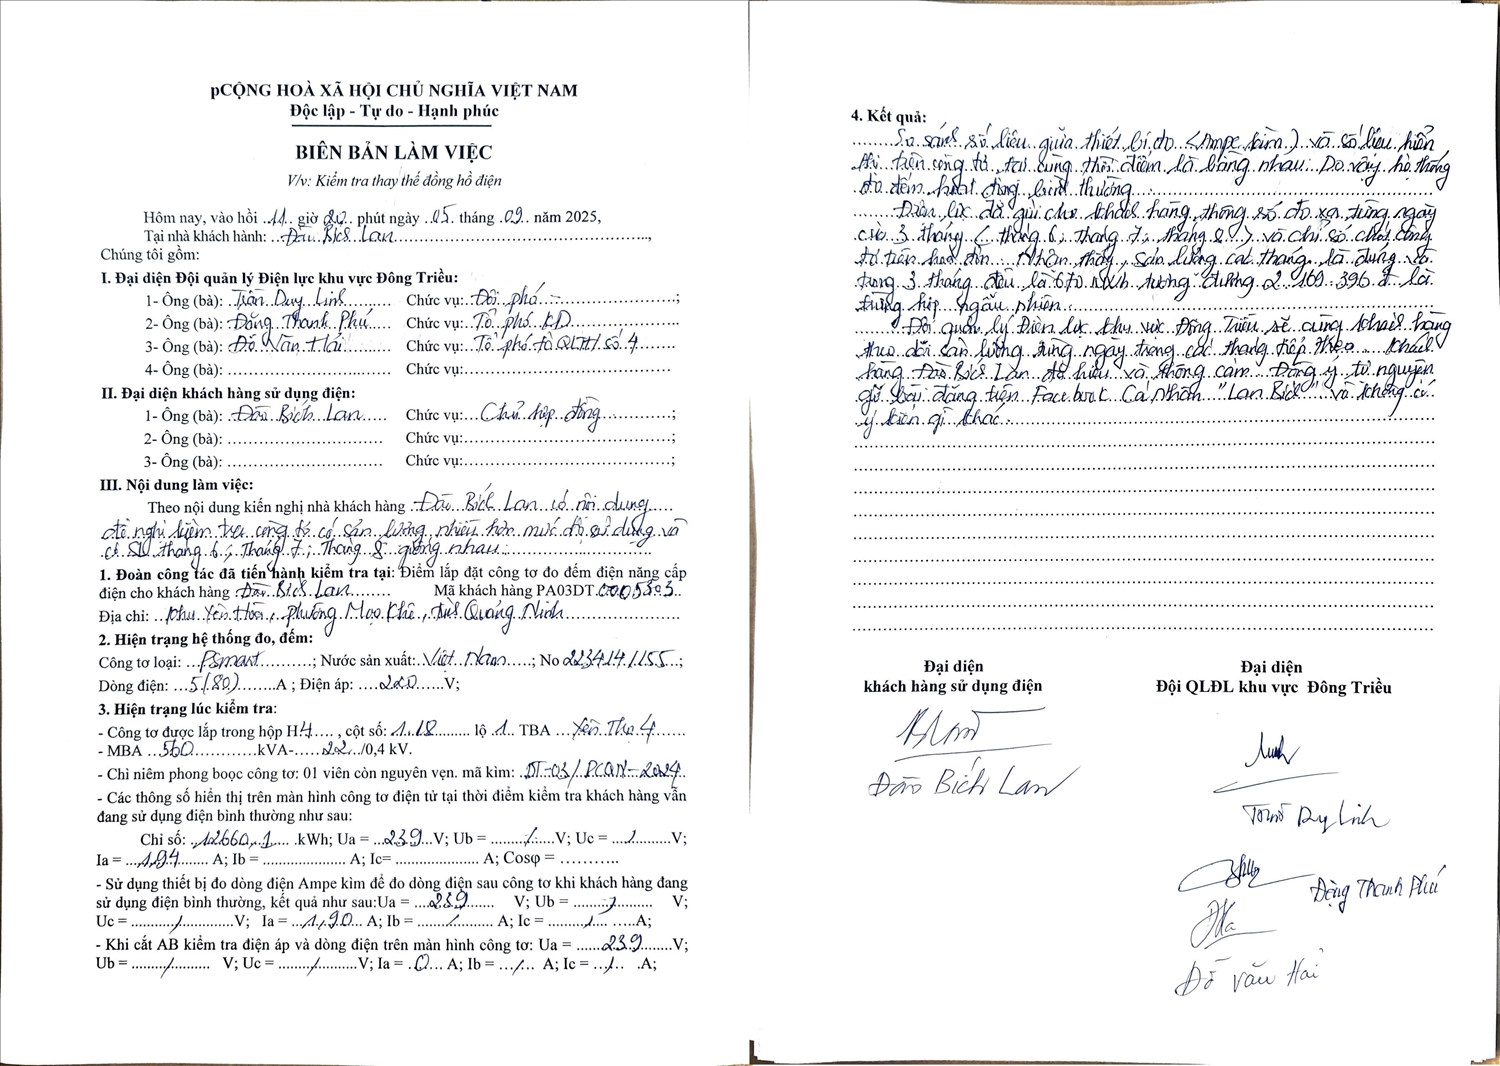 pCỘNG HOÀ XÃ HỘI CHỦ NGHĨA VIỆT NAM
Độc lập - Tự do - Hạnh phúc
BIÊN BẢN LÀM VIỆC
V/v: Kiểm tra thay thế đồng hồ điện
Hôm nay, vào hồi .11.. giờ 20.. phút ngày .05. tháng .09.. năm 2025,
Tại nhà khách hành: ..Đào Bích Lan..............................................,
Chúng tôi gồm:
I. Đại diện Đội quản lý Điện lực khu vực Đông Triều:
1- Ông (bà): Trần Duy Linh.......... Chức vụ: Đội phó..............................;
2- Ông (bà): Đặng Thanh Phú..... Chức vụ: Tổ phó KD..........................
3- Ông (bà): Đỗ Văn Hải.......... Chức vụ: Tổ phó tổ QLTH số 4........
4- Ông (bà): .............................. Chức vụ:.......................................
II. Đại diện khách hàng sử dụng điện:
1- Ông (bà): Đào Bích Lan....... Chức vụ: Chủ hợp đồng...............;
2- Ông (bà): .............................. Chức vụ:.......................................;
3- Ông (bà): .............................. Chức vụ:.......................................;
III. Nội dung làm việc:
Theo nội dung kiến nghị nhà khách hàng .Đào Bích Lan có nội dung....
đề nghị kiểm tra công tơ có sản lượng nhiều hơn mức độ sử dụng và
có SL tháng 6; Tháng 7; Tháng 8 giống nhau..............................
1. Đoàn công tác đã tiến hành kiểm tra tại: Điểm lắp đặt công tơ đo đếm điện năng cấp
điện cho khách hàng Đào Bích Lan........ Mã khách hàng PA03DT.0005303..
Địa chỉ: ...khu Yên Hòa, phường Mạo Khê, tỉnh Quảng Ninh.........................
2. Hiện trạng hệ thống đo, đếm:
Công tơ loại: ...PSmart..........; Nước sản xuất:.Việt Nam.....; No 2234141155..;
Dòng điện: ...5(80).......A ; Điện áp: ....220......V;
3. Hiện trạng lúc kiểm tra:
- Công tơ được lắp trong hộp H4.... , cột số: 1.18......... lộ .1.. TBA ...Yên Thọ 4......
- MBA ...560.............kVA-.....22.../0,4 kV.
- Chì niêm phong booc công tơ: 01 viên còn nguyên vẹn. mã kìm: .DT-03/PCQN-2024.
- Các thông số hiển thị trên màn hình công tơ điện tử tại thời điểm kiểm tra khách hàng vẫn
đang sử dụng điện bình thường như sau:
Chỉ số: .12660,.1.... .kWh; Ua = ...239...V; Ub = ......../.....V; Uc = .../.........V;
Ia = ...1.94........ A; Ib = ..................... A; Ic= ..................... A; Cosφ = ...........
- Sử dụng thiết bị đo dòng điện Ampe kìm để đo dòng điện sau công tơ khi khách hàng đang
sử dụng điện bình thường, kết quả như sau:Ua = ....239....... V; Ub = ......../......... V;
Uc = ........../............V; Ia = ...1,90... A; Ib = ......../........ A; Ic = ......../.... .....A;
- Khi cắt AB kiểm tra điện áp và dòng điện trên màn hình công tơ: Ua = ......239........V;
Ub = ........../.......... V; Uc = ......../..........V; Ia = .0... A; Ib = .../... A; Ic = .../.. .A;
4. Kết quả:
........So sánh số liệu giữa thiết bị đo (Ampe kìm) và số liệu hiển
thị trên công tơ tại cùng thời điểm là bằng nhau. Do vậy hệ thống
đo đếm hoạt động bình thường.............................
........Điện lực đã gửi cho khách hàng thông số đo xa từng ngày
của 3 tháng (tháng 6; tháng 7; tháng 8) và chỉ số chốt công
tơ trên hóa đơn. Nhận thấy sản lượng các tháng là đúng và
trong 3 tháng đều là 670 kWh tương đương 2.169.396 đ là
trường hợp ngẫu nhiên...........................
........Đội quản lý Điện lực khu vực Đông Triều sẽ cùng khách hàng
theo dõi sản lượng từng ngày trong các tháng tiếp theo. Khách
hàng Đào Bích Lan đã hiểu và thông cảm. Đồng ý, tự nguyện
gỡ bài đăng trên Facebook Cá nhân "Lan Bích" và không có
ý kiến gì khác............................
Đại diện
khách hàng sử dụng điện
Đào Bích Lan
Đại diện
Đội QLĐL khu vực Đông Triều
Trần Duy Linh
Đặng Thanh Phú
Đỗ Văn Hải